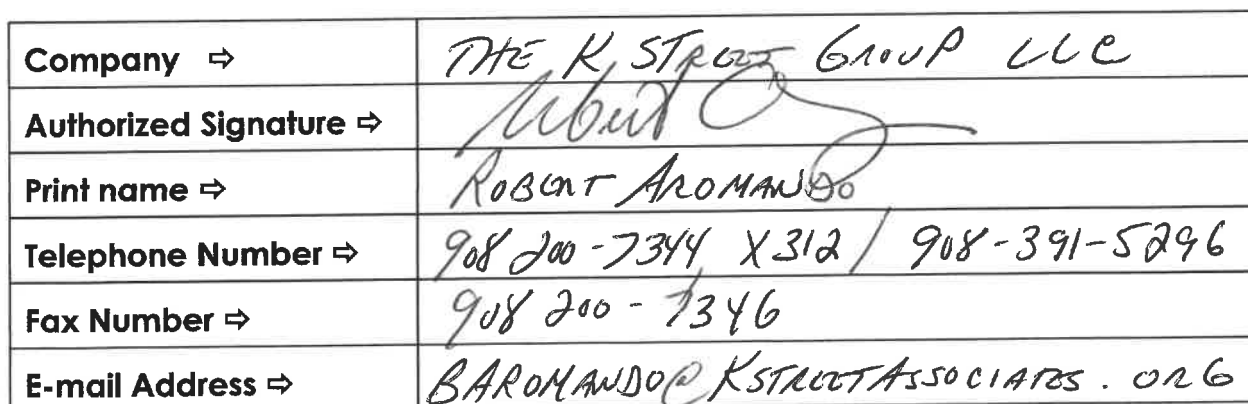 Company ⇨ THE K STREET GROUP LLC
Authorized Signature ⇨
Print name ⇨ ROBERT AROMANDO
Telephone Number ⇨ 908 200-7344 X312 / 908-391-5296
Fax Number ⇨ 908 200-7346
E-mail Address ⇨ BAROMANDO@KSTREETASSOCIATES.ORG